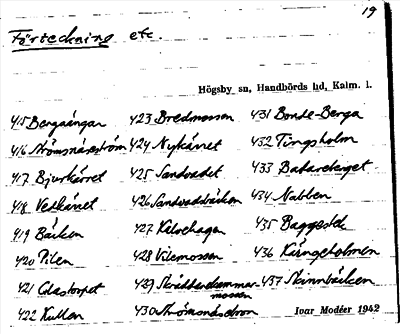 19
Förteckning etc.
Högsby sn, Handbörds hd, Kalm. l.
415 Bergaängar
416 Strömsnäsström
417 Bjurkärret
418 Vetkärret
419 Bäcken
420 Pilen
421 Glastorpet
422 Kullen
423 Bredmossen
424 Nykärret
425 Sandvadet
426 Sandvadsbäcken
427 Kalvehagen
428 Vitemossen
429 Skräddarehammarmossen
430
431 Bonde-Berga
432 Tingsholm
433 Badareberget
434 Nabben
435
436 Käringeholmen
437 Skinnbäcken
Ivar Modéer 1942